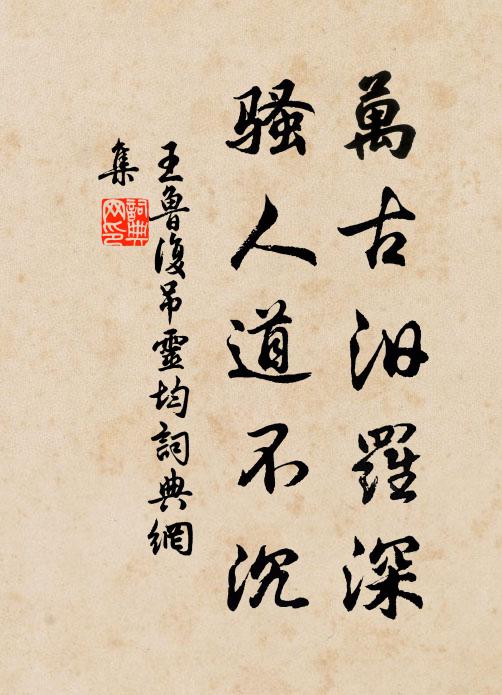 萬古汨羅深
騷人道不沉
王魯復吊靈均詞典網
集
詞典
网印